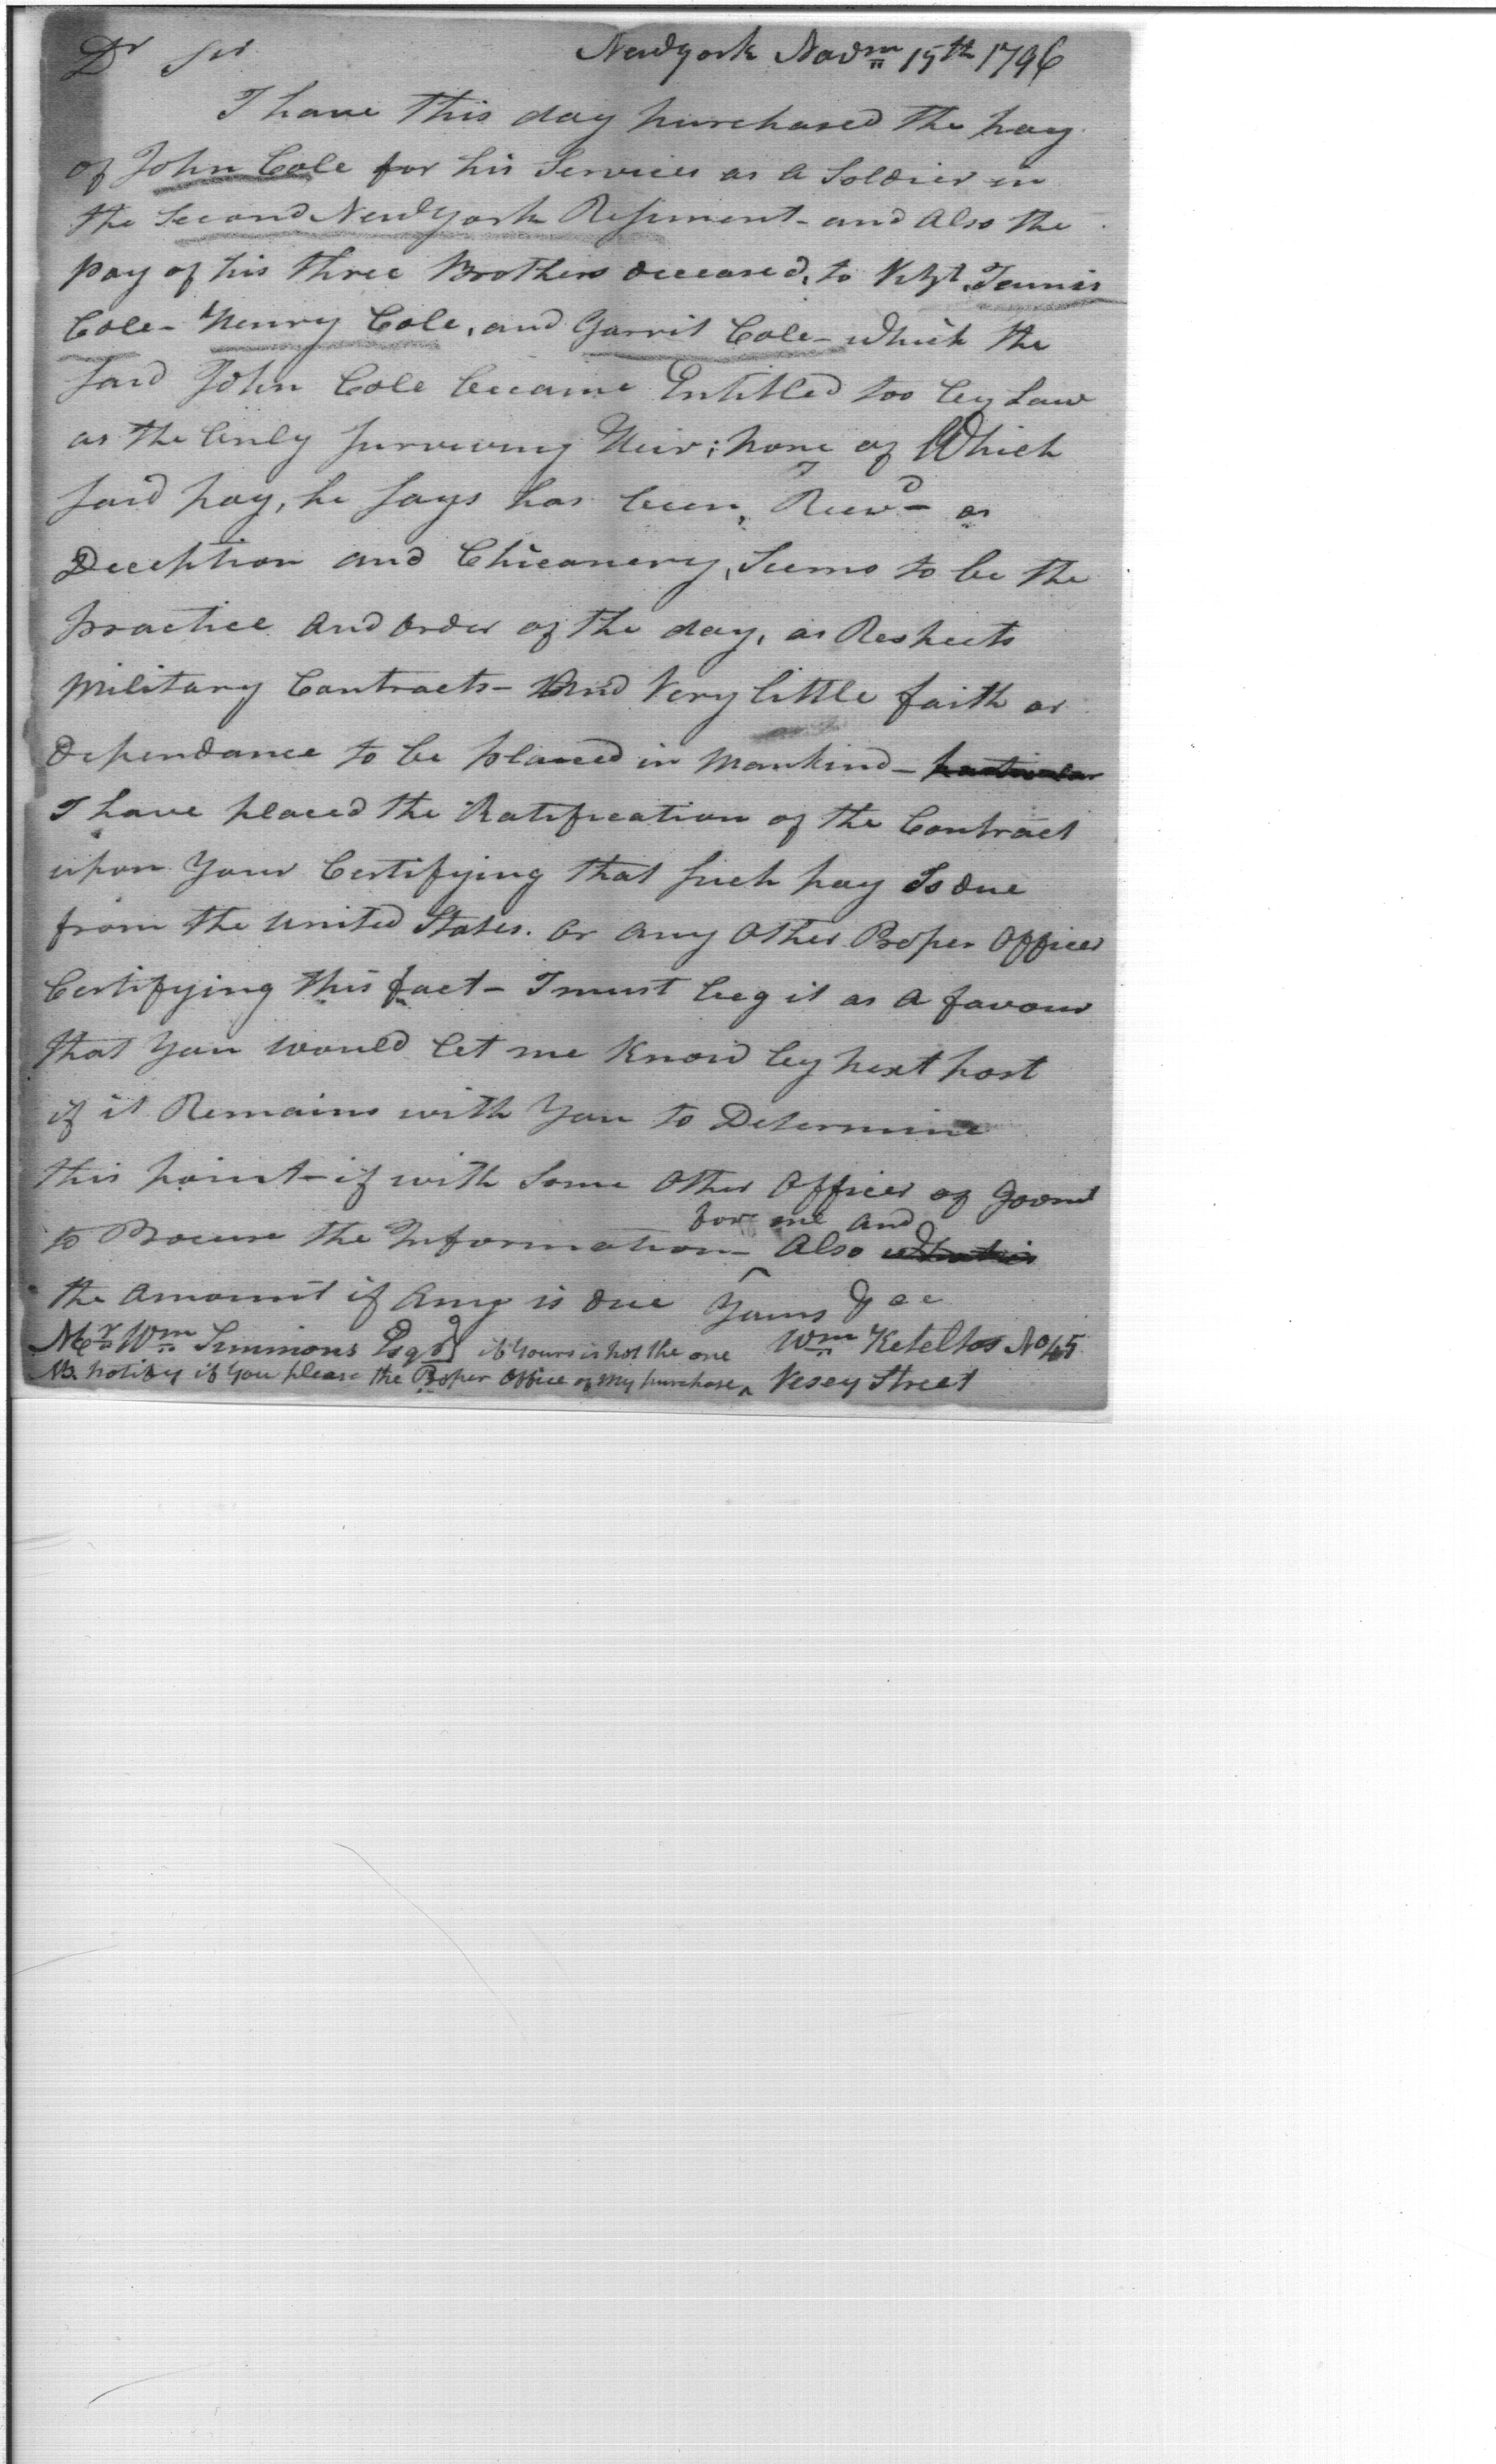 Dr Sir Newyork Novm 15th 1796
I have this day purchased the pay
of John Cole for his Services as a Soldier in
the Second Newyork Regiment - and Also the
pay of his three Brothers deceased, to Wit, Teunis
Cole - Henry Cole, and Garrit Cole - which the
said John Cole became Entitled too by Law
as the only surviving Heir; none of Which
said pay, he says has been, Recvd - as
Deception and Chicanery, Seems to be the
practice and order of the day, as Respects
Military Contracts - And Very little faith or
Dependance to be placed in Mankind - particular
I have placed the Ratification of the Contract
upon Your Certifying that such pay Is due
from the United States. or any other Proper Officer
Certifying this fact - I must beg it as a favour
that You would let me Know by next post
if it Remains with You to Determine
this point - if with Some Other Officer of Goverd
for me and
to Procure the Information - Also
the amount if Any is due Yours &cc
Mr Wm Simmons Esqr if Yours is not the one Wm Keteltas No 45
NB. notify if You please the Proper Office of My purchase Vesey Street